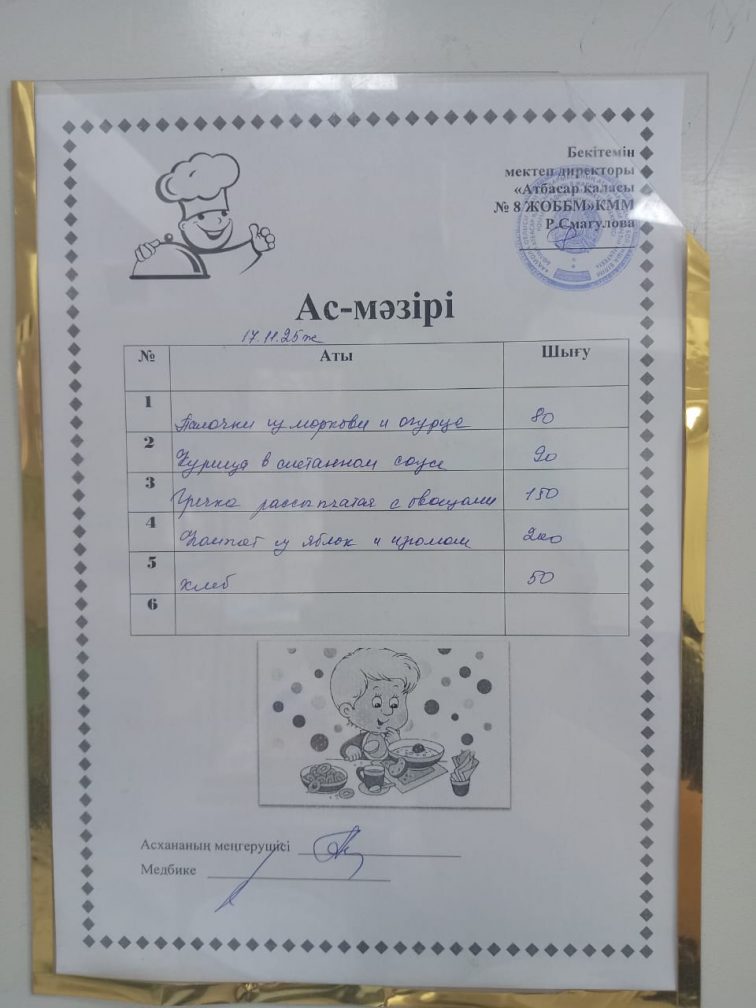 Бекітемін
мектеп директоры
«Атбасар қаласы
№ 8 ЖОББМ»КММ
Р.Смагулова
Ас-мәзірі
17.11.25ж
№ Аты Шығу
1 Палочки из моркови и огурца 80
2 Курица в сметанном соусе 90
3 Гречка рассыпчатая с овощами 150
4 Компот из яблок и изюмом 200
5 Хлеб 50
6
Асхананың меңгерушісі
Медбике